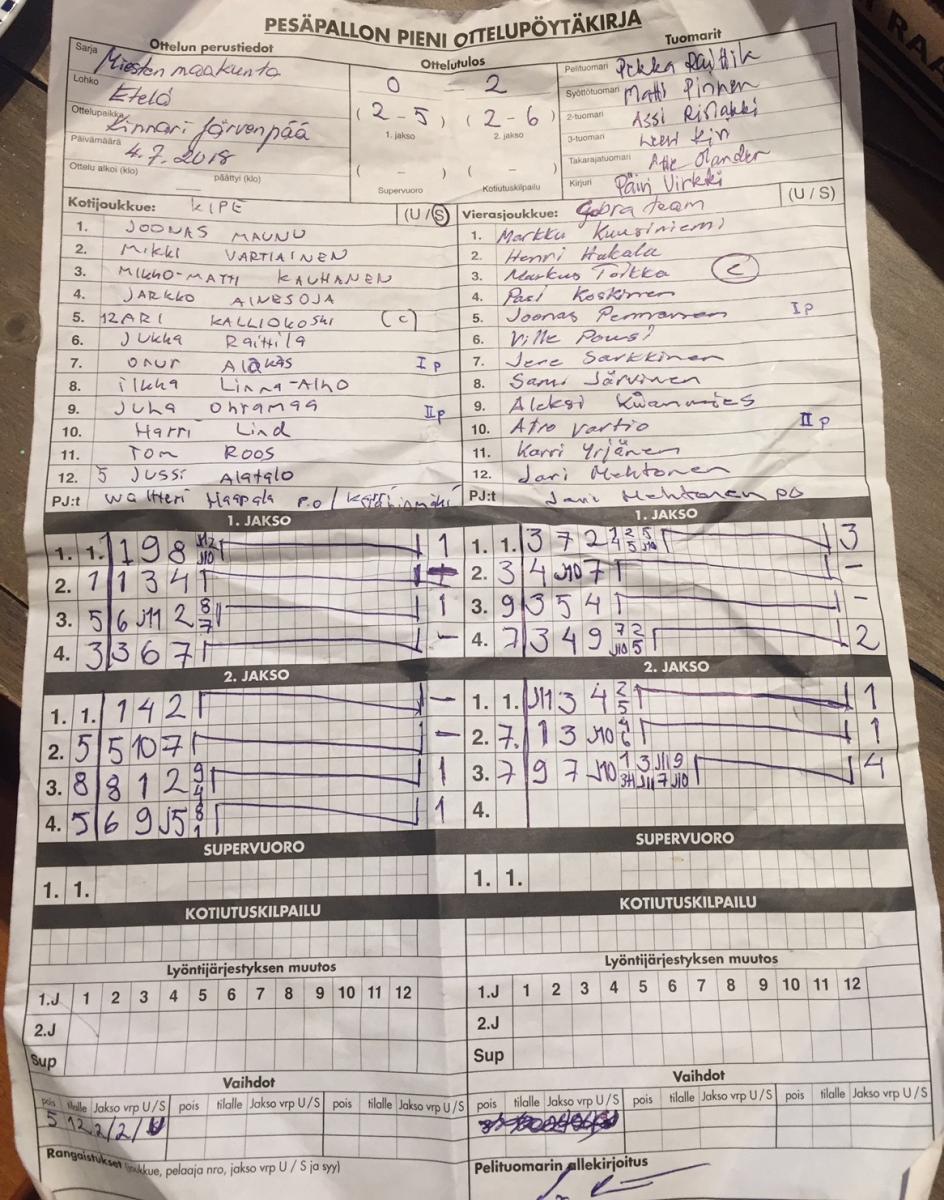 PESÄPALLON PIENI OTTELUPÖYTÄKIRJA
Ottelun perustiedot
Sarja Miesten maakunta
Lohko Etelä
Ottelupaikka Kinnari Järvenpää
Päivämäärä 4.7.2018
Ottelu alkoi (klo) päättyi (klo)
Ottelutulos
0 - 2
(2-5) (2-6)
1. jakso 2. jakso
( - ) ( - )
Supervuoro Kotiutuskilpailu
Tuomarit
Pelituomari Pekka
Syöttötuomari Matti Pinnen
2-tuomari Assi
3-tuomari
Takarajatuomari Atte Olander
Kirjuri Päivi Virkki
Kotijoukkue: KIPE (U/S)
1. JOONAS MAUNU
2. MIKKI VARTIAINEN
3. MIKKO-MATTI KAUHANEN
4. JARKKO AINESOJA
5. 12 ARI KALLIOKOSKI (C)
6. Jukka Raittila
7. Onur Alakas I p
8. ilkka Linna-Alho
9. Juha Ohramaa II p
10. Harri Lind
11. Tom Roos
12. 5 Jussi Alatalo
PJ:t Waltteri Haapala P.O /
Vierasjoukkue: Gobra team (U/S)
1. Markku Kuusiniemi
2. Henri Hakala
3. Markus Toikka C
4. Pasi Koskinen
5. Joonas Permanen I p
6. Ville Pousi
7. Jere Sarkkinen
8. Sami Järvinen
9. Aleksi
10. Atro Vartio II p
11. Karri Yrjänen
12. Jari Mehtonen
PJ:t Jari Mehtonen PO
1. JAKSO
1. 1. 1 9 8 J12 J10 1
2. 1 1 3 4
3. 5 6 J11 2 8 7 1
4. 3 3 6 7 -
1. JAKSO
1. 1. 3 7 2 1 4 2 5 5 J10 3
2. 3 4 J10 7 -
3. 9 3 5 4 -
4. 7 3 4 9 7 J10 2 5 2
2. JAKSO
1. 1. 1 4 2 -
2. 5 5 10 7 -
3. 8 8 1 2 9 4 1
4. 5 6 9 J5 8 1 1
2. JAKSO
1. 1. J11 3 4 2 5 1
2. 7. 1 3 J10 4 6 1
3. 7 9 7 J10 1 3 J11 9 3 J11 7 J10 4
4.
SUPERVUORO
1. 1.
SUPERVUORO
1. 1.
KOTIUTUSKILPAILU
KOTIUTUSKILPAILU
Lyöntijärjestyksen muutos
1.J 1 2 3 4 5 6 7 8 9 10 11 12
2.J
Sup
Lyöntijärjestyksen muutos
1.J 1 2 3 4 5 6 7 8 9 10 11 12
2.J
Sup
Vaihdot
pois tilalle Jakso vrp U/S pois tilalle Jakso vrp U/S pois tilalle Jakso vrp U/S
5 12 2/2/U
Vaihdot
pois tilalle Jakso vrp U/S pois tilalle Jakso vrp U/S pois tilalle Jakso vrp U/S
Rangaistukset (joukkue, pelaaja nro, jakso vrp U / S ja syy)
Pelituomarin allekirjoitus